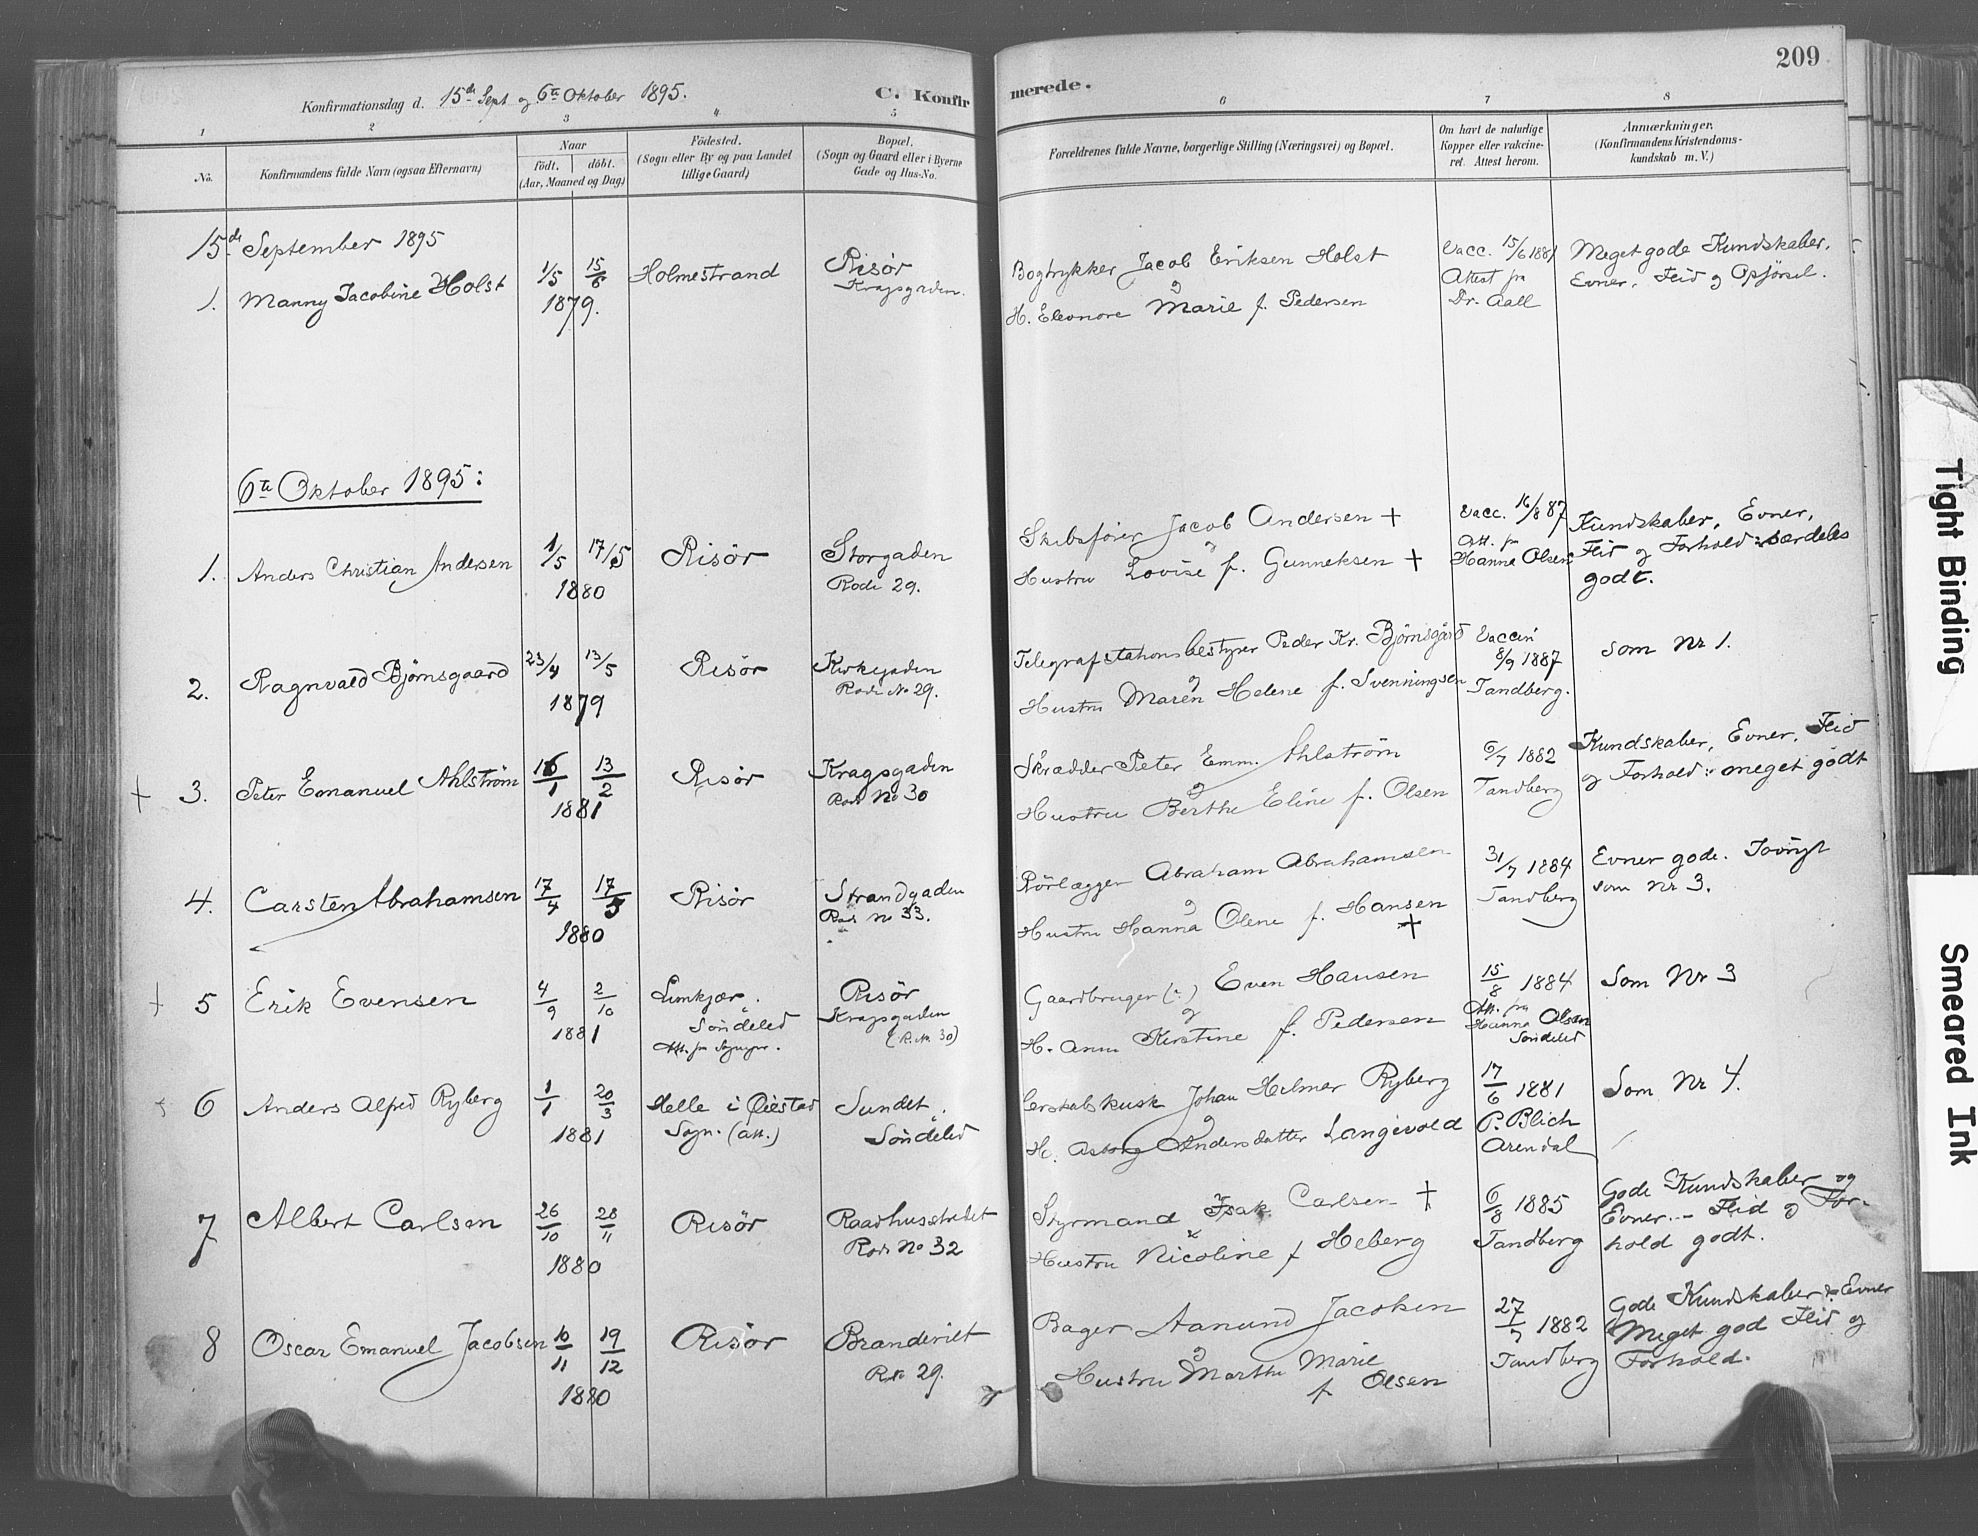 209
Konfirmationsdag d. 15de Sept og 6te Oktober 1895.
C. Konfirmerede.
1 2 3 4 5 6 7 8
No.
Konfirmandens fulde Navn (ogsaa Efternavn)
Naar
födt. döbt.
(Aar, Maaned og Dag)
Födested.
(Sogn eller By og paa Landet
tillige Gaard)
Bopæl.
(Sogn og Gaard eller i Byerne
Gade og Hus-No.
Forældrenes fulde Navne, borgerlige Stilling (Næringsvei) og Bopæl.
Om havt de naturlige
Kopper eller vakcine-
ret. Attest herom.
Anmærkninger.
(Konfirmandens Kristendoms-
kundskab m. V.)
15de September 1895
1. Manny Jacobine Holst
1/5 15/6
1879.
Holmestrand
Risör
Kragsgaden.
Bogtrykker Jacob Eriksen Holst
og
H. Eleonore Marie f. Pedersen
Vacc. 15/6 1881
Attest fra
Dr. Aall
Meget gode Kundskaber,
Evner, Flid og Opførsel.
6te Oktober 1895:
1. Anders Christian Andersen
1/5 17/5
1880
Risör
Storgaden
Rode 29.
Skibsfører Jacob Andersen +
og
Hustru Lovise f. Gunneksen +
Vacc. 16/8 87
Att. fra
Hanna Olsen
Kundskaber, Evner,
Flid og Forhold: særdeles
godt.
2. Ragnvald Bjørnsgaard
23/4 13/5
1879
Risör
Kirkegaden
Rode No 29.
Telegrafstationsbestyrer Peder Kr. Bjørnsgård
og
Hustru Maren Helene f. Svenningsen
Vaccin
8/9 1887
Tandberg.
Som Nr 1.
+ 3. Peter Emanuel Ahlström
16/1 13/2
1881
Risör
Kragsgaden
Rode No 30
Skrædder Peter Emm. Ahlström
og
Hustru Berthe Eline f. Olsen
6/7 1882
Tandberg
Kundskaber, Evner, Flid
og Forhold: meget godt
4. Carsten Abrahamsen
17/4 17/5
1880
Risör
Strandgaden
Rode No 33.
Rörlægger Abraham Abrahamsen
og
Hustru Hanna Olene f. Hansen
+
31/7 1884
Tandberg
Evner gode. Iøvrigt
som Nr 3.
+ 5 Erik Evensen
4/9 2/10
1881
Limkjær.
Söndeled
Att. fra Sognepr.
Risör
Kragsgaden
(R. No. 30)
Gaardbruger (:) Even Hansen
og
H. Anne Kirstine f. Pedersen
15/8 1884
Att. fra
Hanna Olsen
Söndeled
Som Nr 3
6 Anders Alfred Ryberg
1/1 20/3
1881
Helle i Öiestad
Sogn. (att.)
Sundet.
Söndeled
Johan Hilmer Ryberg
og
H. Asborg Andersdatter Langevold
17/6 1881
P. Blich
Arendal
Som Nr 4.
7 Albert Carlsen
26/10 28/11
1880
Risör
Raadhusstrædet
Rode No 32
Styrmand Isak Carlsen +
Hustru Nicoline f Heberg
6/8 1885
Tandberg
Gode Kundskaber og
Evner. - Flid og For-
hold godt.
8 Oscar Emanuel Jacobsen
10/11 19/12
1880
Risör
R. 29.
Bager Aanund Jacobsen
og
Hustru Marthe Marie
f Olsen
27/7 1882
Tandberg
Gode Kundskaber & Evner
Meget god Flid og
Forhold.
Tight Binding
Smeared Ink